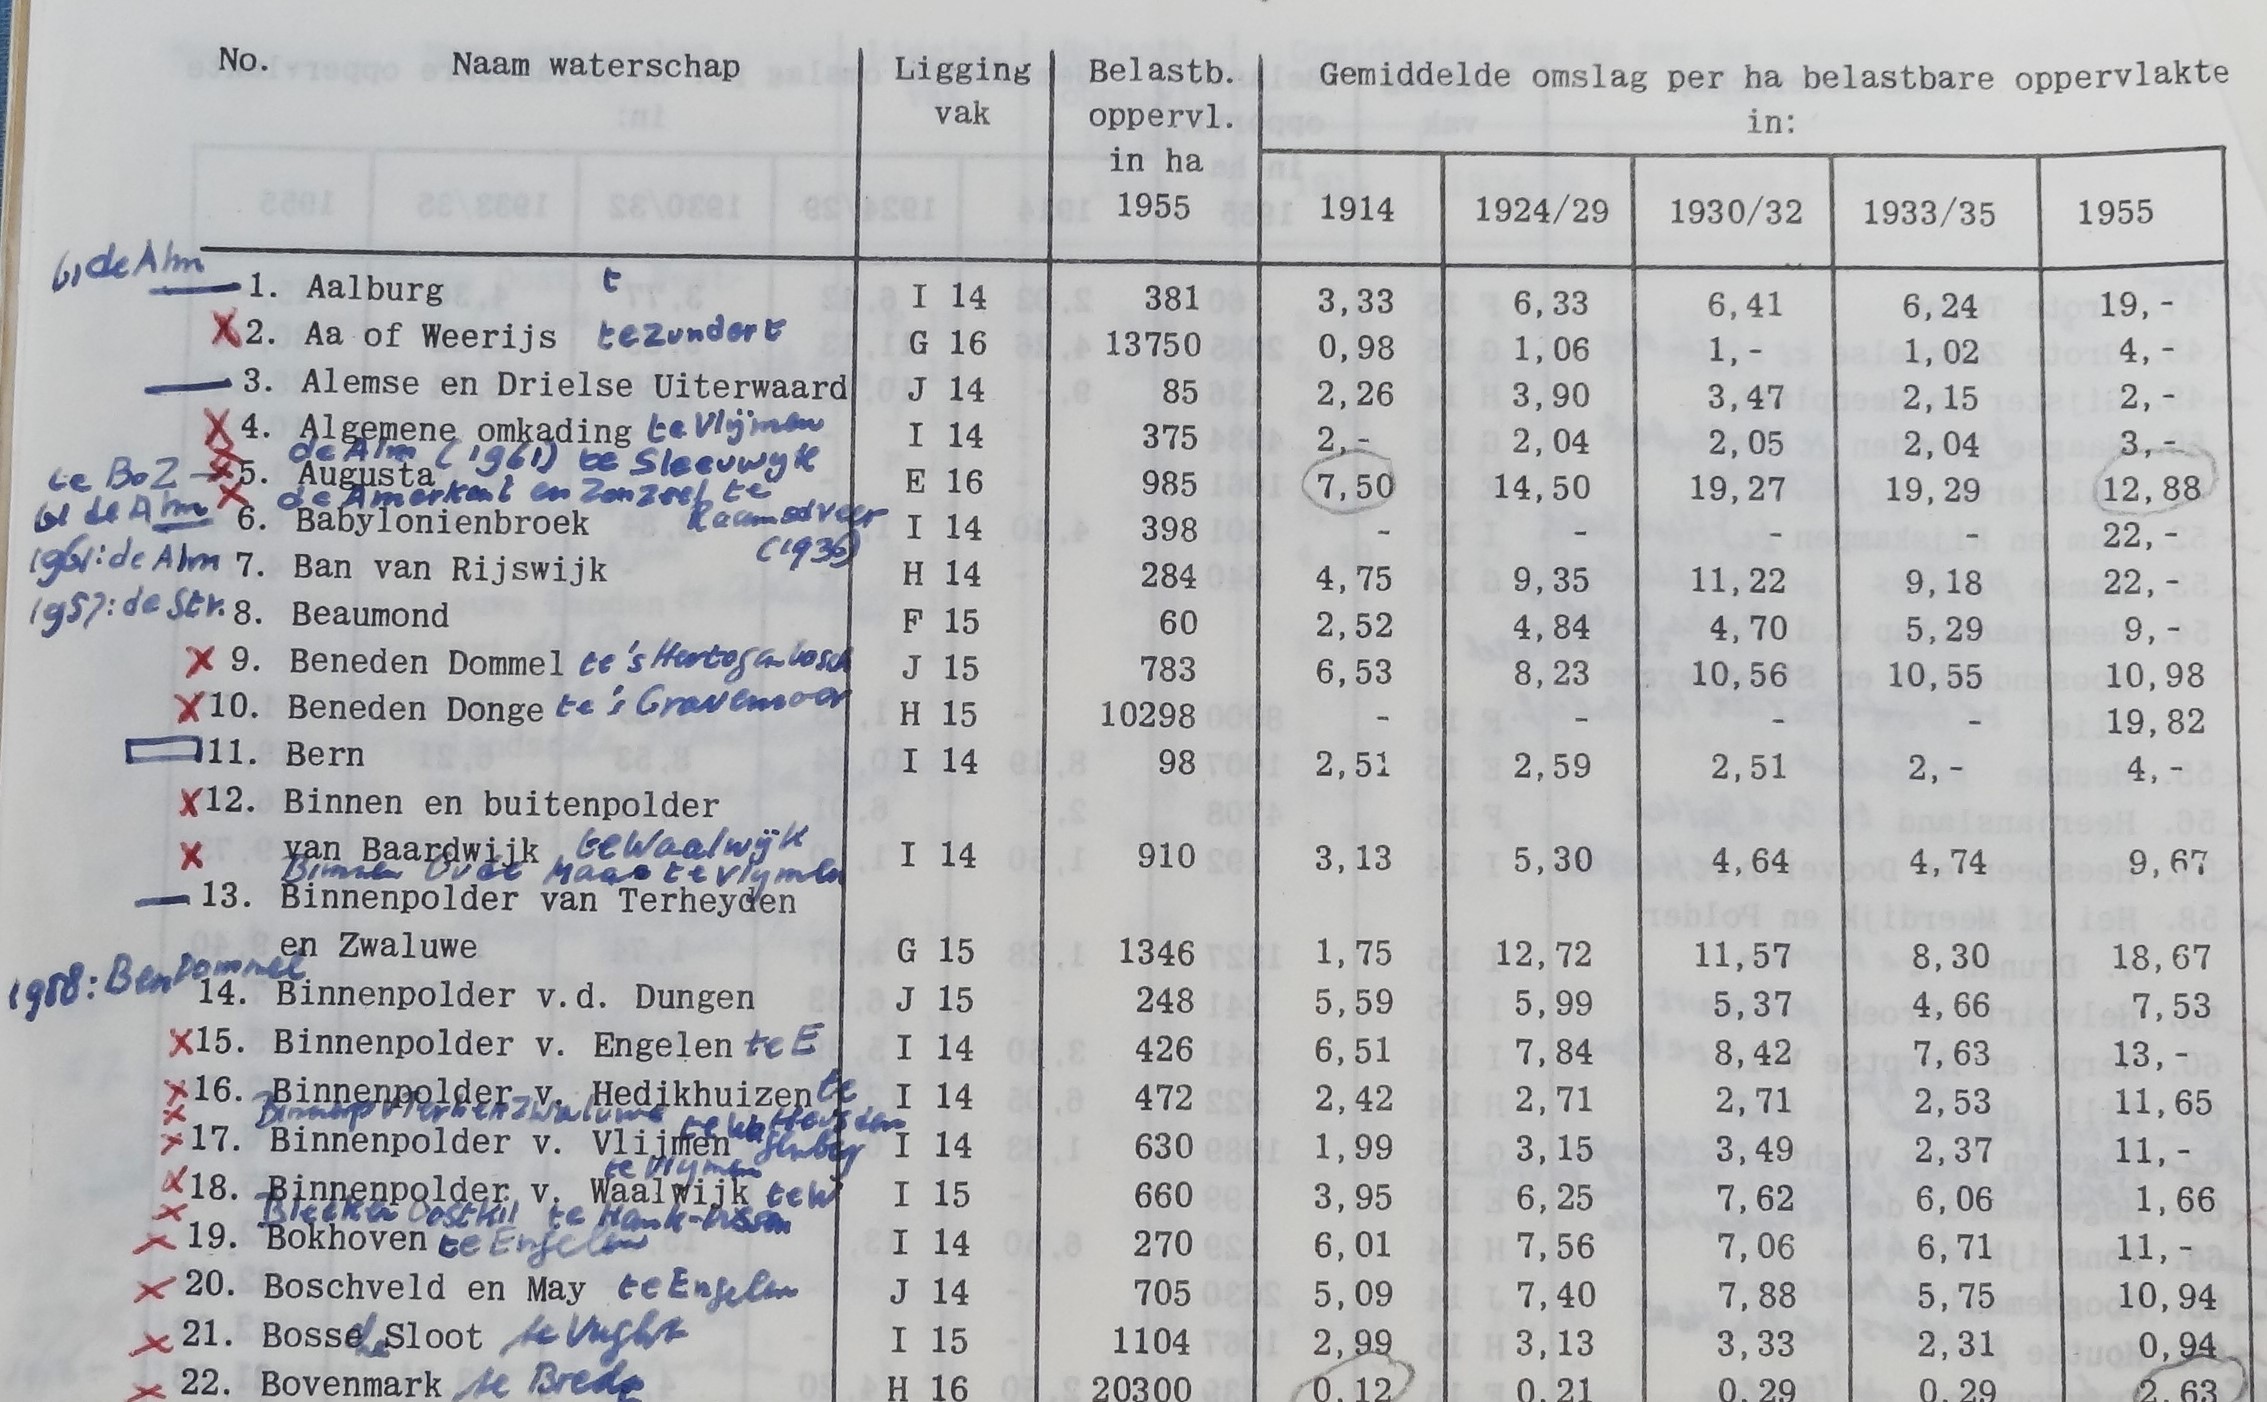 No. Naam waterschap Ligging Belastb. Gemiddelde omslag per ha belastbare oppervlakte
vak oppervl. in:
in ha
1955 1914 1924/29 1930/32 1933/35 1955
61 de Alm
1. Aalburg t I 14 381 3,33 6,33 6,41 6,24 19,-
X 2. Aa of Weerijs te Zundert G 16 13750 0,98 1,06 1,- 1,02 4,-
3. Alemse en Drielse Uiterwaard J 14 85 2,26 3,90 3,47 2,15 2,-
X 4. Algemene omkading te Vlijmen I 14 375 2,- 2,04 2,05 2,04 3,-
X de Alm (1961) te Sleeuwijk
te BoZ X 5. Augusta E 16 985 7,50 14,50 19,27 19,29 12,88
X de Amerkant en Zonzeel te
Raamsdveer
(1936)
61 de Alm 6. Babylonienbroek I 14 398 - - - - 22,-
1961: de Alm 7. Ban van Rijswijk H 14 284 4,75 9,35 11,22 9,18 22,-
1957: de Str. 8. Beaumond F 15 60 2,52 4,84 4,70 5,29 9,-
X 9. Beneden Dommel te 's Hertogenbosch J 15 783 6,53 8,23 10,56 10,55 10,98
X 10. Beneden Donge te 's Gravenmoer H 15 10298 - - - - 19,82
11. Bern I 14 98 2,51 2,59 2,51 2,- 4,-
X 12. Binnen en buitenpolder
X van Baardwijk te Waalwijk I 14 910 3,13 5,30 4,64 4,74 9,67
Binnen Oude Maas te Vlymen
13. Binnenpolder van Terheyden
en Zwaluwe G 15 1346 1,75 12,72 11,57 8,30 18,67
1958: Ben Dommel
14. Binnenpolder v.d. Dungen J 15 248 5,59 5,99 5,37 4,66 7,53
X 15. Binnenpolder v. Engelen te E I 14 426 6,51 7,84 8,42 7,63 13,-
X 16. Binnenpolder v. Hedikhuizen te I 14 472 2,42 2,71 2,71 2,53 11,65
X Binnenp v Terheyen Zwaluwe te Heusden
X 17. Binnenpolder v. Vlijmen I 14 630 1,99 3,15 3,49 2,37 11,-
te Vlymen
X 18. Binnenpolder v. Waalwijk te W I 15 660 3,95 6,25 7,62 6,06 1,66
X Bleeken Oostkil te Hank-Dussen
X 19. Bokhoven te Engelen I 14 270 6,01 7,56 7,06 6,71 11,-
X 20. Boschveld en May te Engelen J 14 705 5,09 7,40 7,88 5,75 10,94
X 21. Bossche Sloot te Vught I 15 1104 2,99 3,13 3,33 2,31 0,94
X 22. Bovenmark te Breda H 16 20300 0,12 0,21 0,29 0,29 2,63